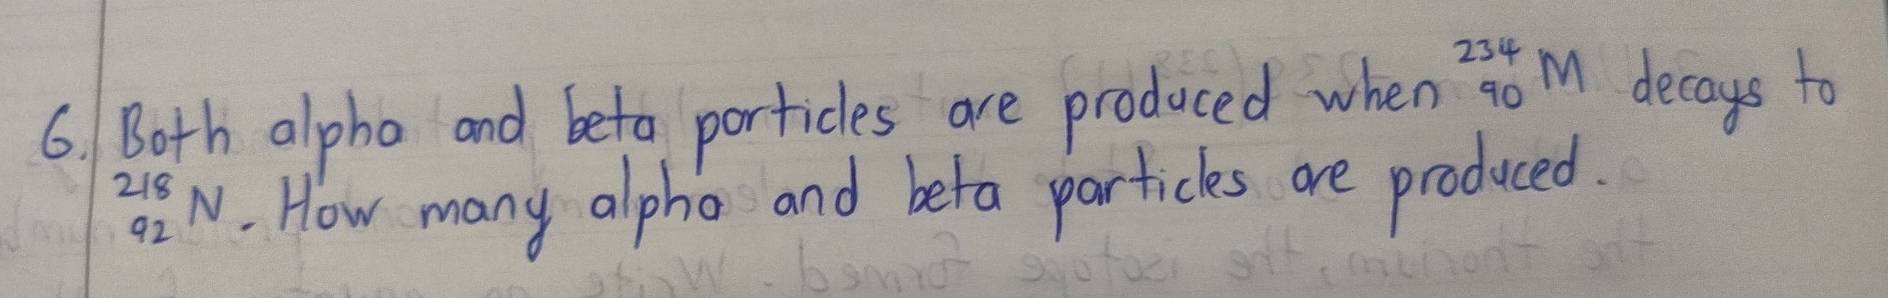 6. Both alpha and beta particles are produced when ²³⁴₉₀M decays to
²¹⁸₉₂N. How many alpha and beta particles are produced.